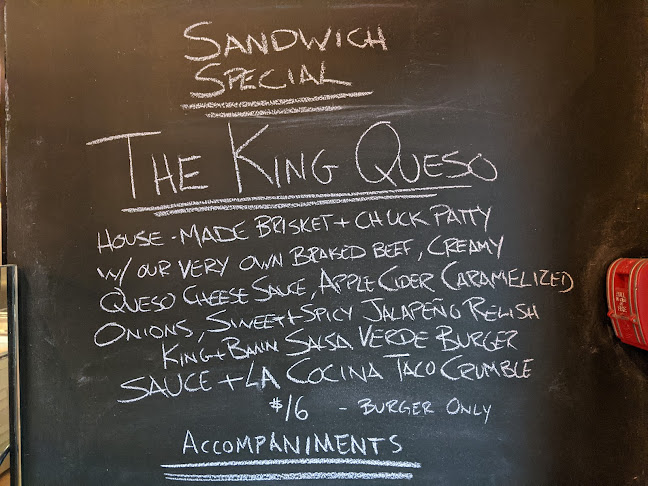 SANDWICH
SPECIAL
THE KING QUESO
HOUSE-MADE BRISKET + CHUCK PATTY
W/ OUR VERY OWN BRAISED BEEF, CREAMY
QUESO CHEESE SAUCE, APPLE CIDER CARAMELIZED
ONIONS, SWEET + SPICY JALAPEÑO RELISH
KING + BANN SALSA VERDE BURGER
SAUCE + LA COCINA TACO CRUMBLE
$16 - BURGER ONLY
ACCOMPANIMENTS